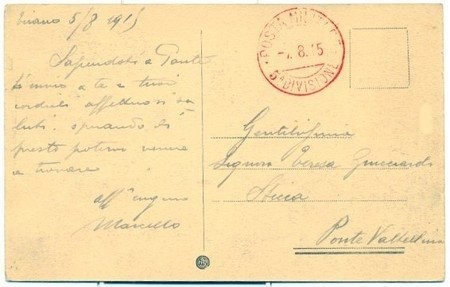 Tirano 5/8 1915
Sapendoti a Ponte
a te e tuoi
cordiali affettuosi sa
luti, sperando di
presto potervi venire
a trovare
aff cugino
Marcello
POSTA MILITARE
8.15
5ª DIVISIONE
Gentilissima
Signora Teresa Guicciardi
Ponte Valtellina